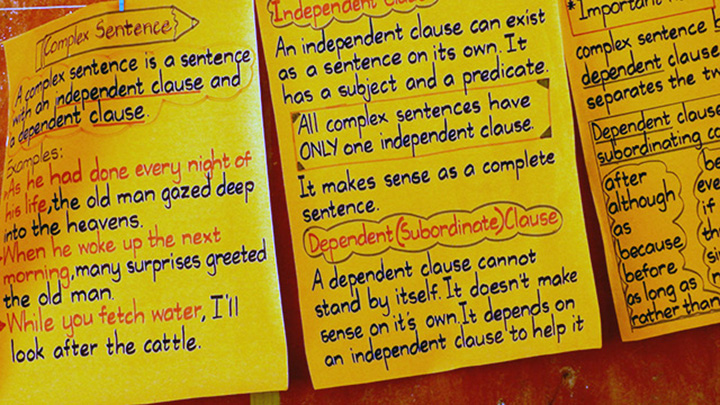 Complex Sentence
A complex sentence is a sentence
with an independent clause and
a dependent clause.
Examples:
As he had done every night of
his life, the old man gazed deep
into the heavens.
When he woke up the next
morning, many surprises greeted
the old man.
While you fetch water, I'll
look after the cattle.
Independent Clause
An independent clause can exist
as a sentence on its own. It
has a subject and a predicate.
All complex sentences have
ONLY one independent clause.
It makes sense as a complete
sentence.
Dependent (Subordinate) Clause
A dependent clause cannot
stand by itself. It doesn't make
sense on it's own. It depends on
an independent clause to help it
*Important
complex sentence
dependent clause
separates the
Dependent clause
subordinating
after
although
as
because
before
as long as
rather than
if